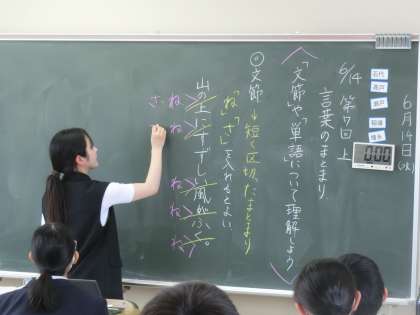 6月14日(水)
石代
高戸
瀬戸
稲垣
横糸
0:00
6/14 第7回 上
言葉のまとまり
「文節」や「単語」について理解しよう
◎文節→短く区切ったまとまり
「ね」「さ」を入れるとよい
山の上にすずしい風がふく。
さ、ね
ね
ね
ね
ね